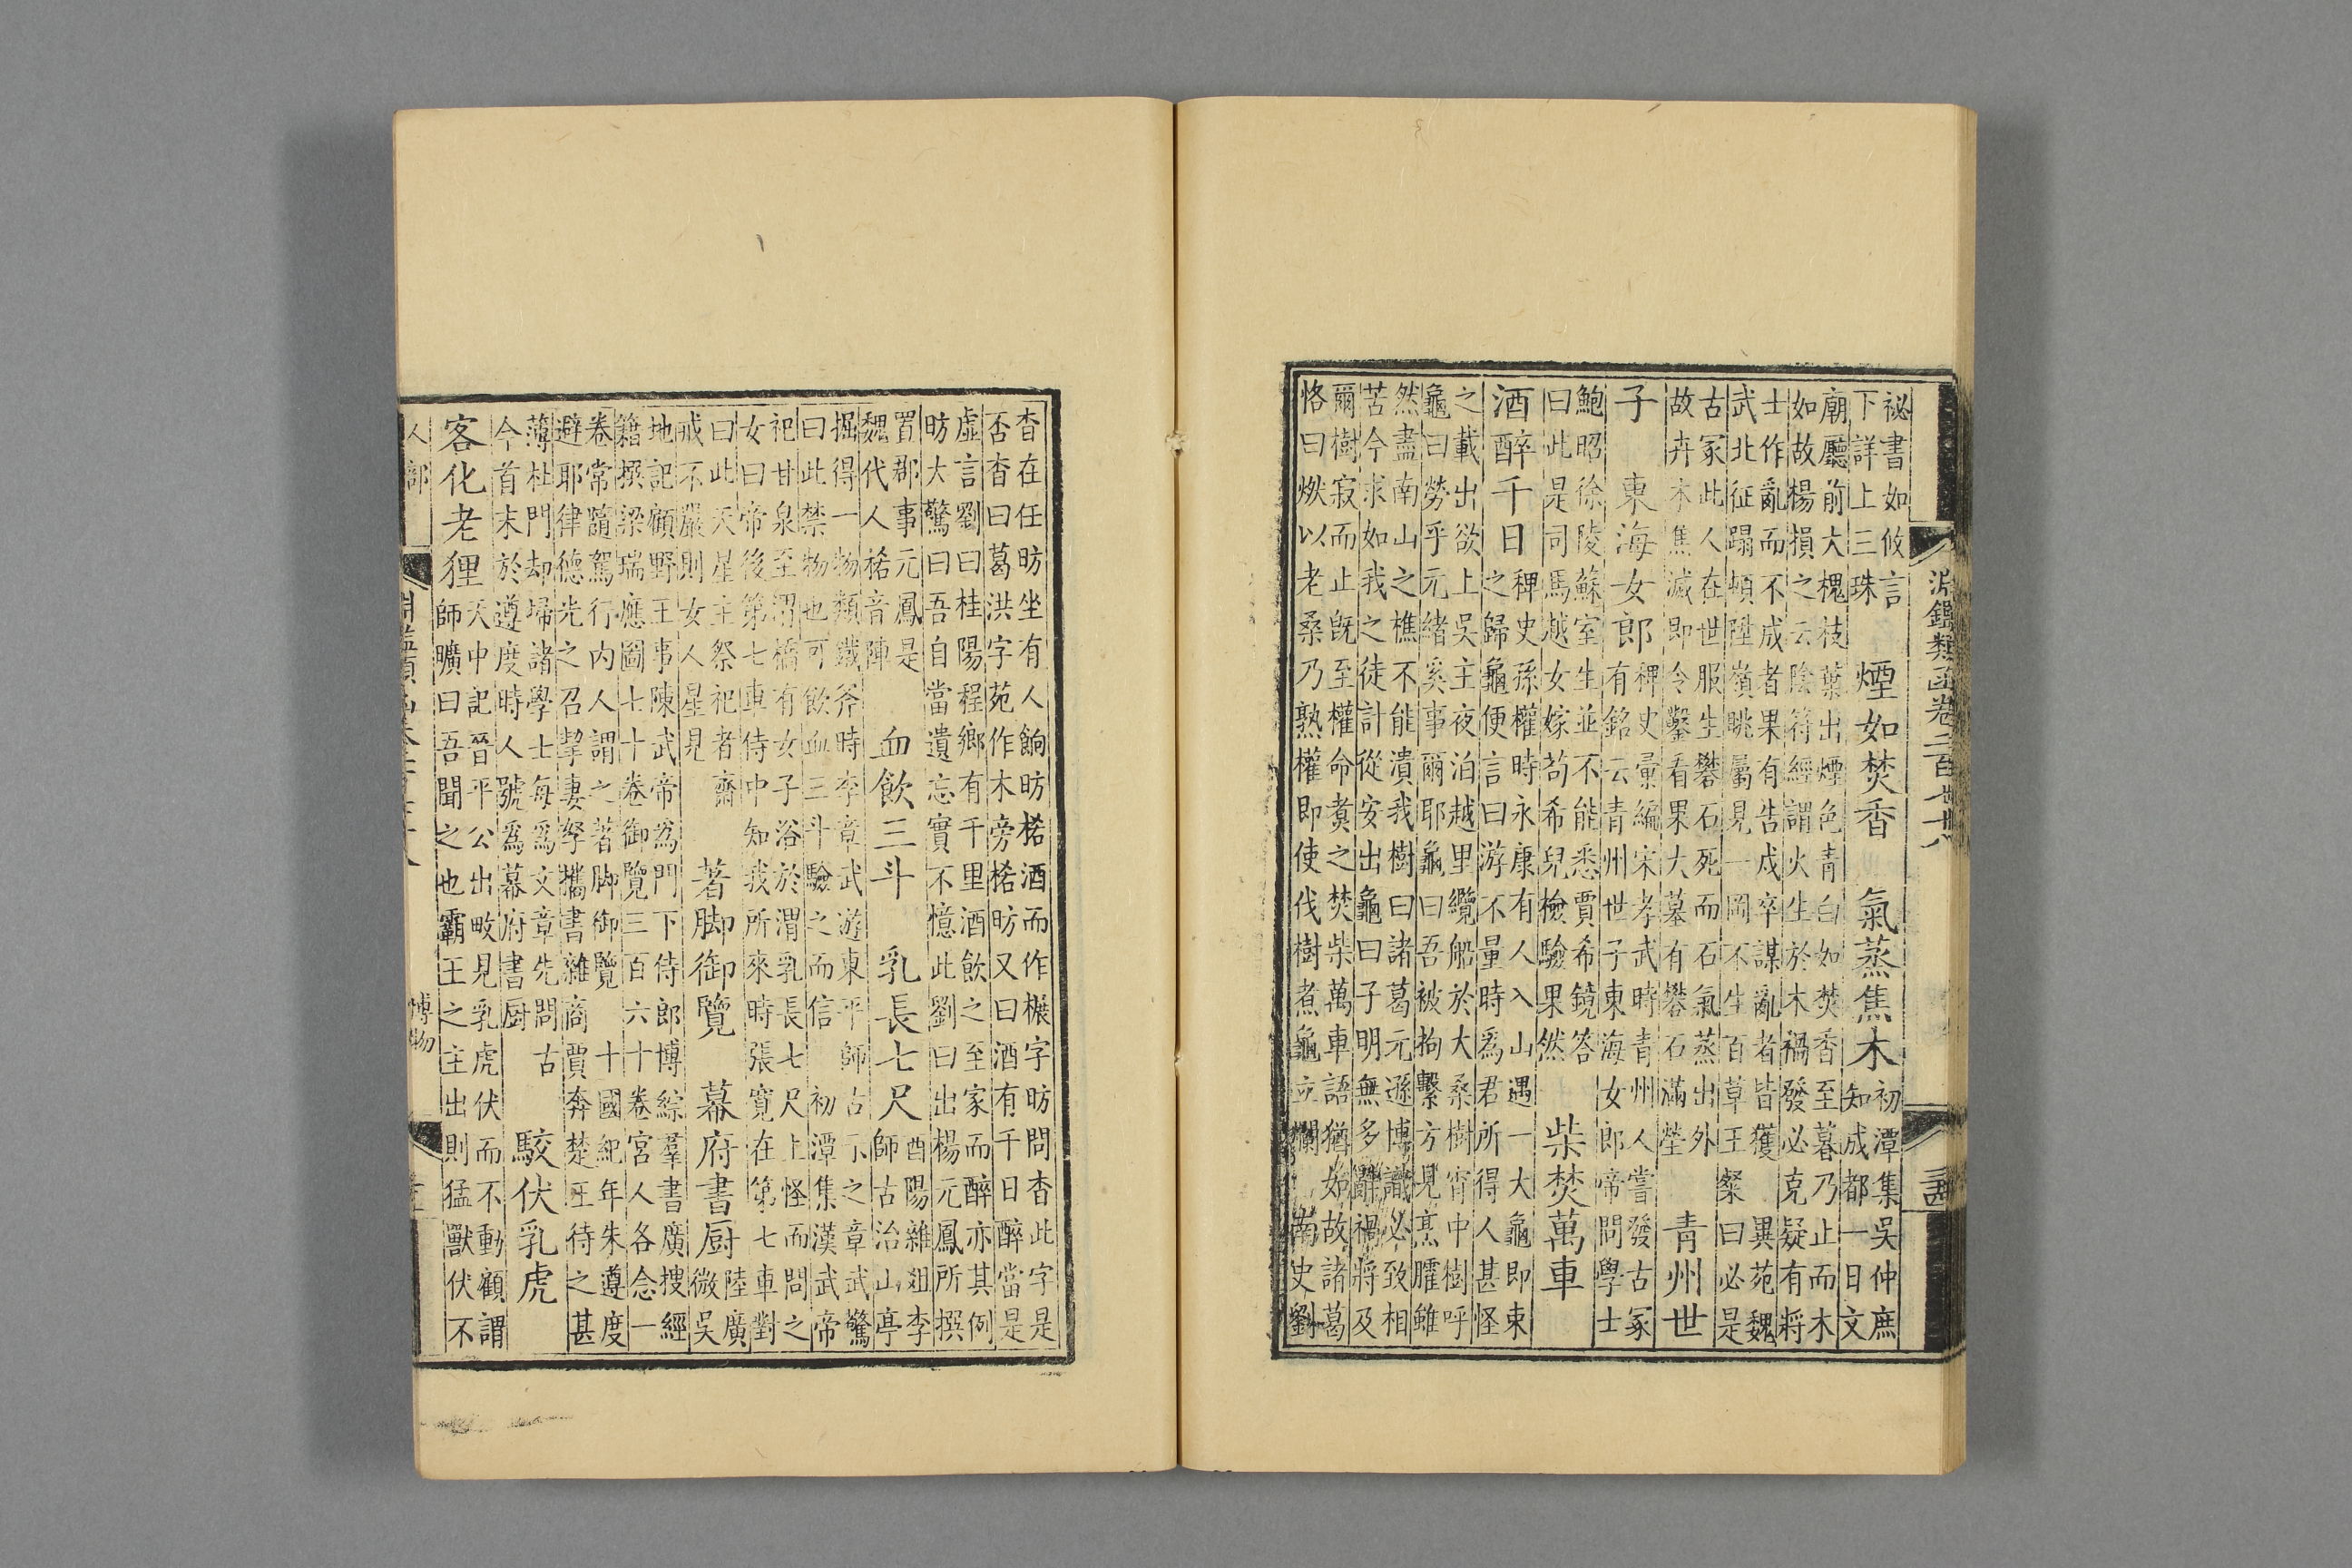 淵鑑類函卷二百
祕書如攸言
下詳上三珠
煙如焚香　氣蒸焦木
初潭集吳仲庶
知成都一日文
廟廳前大槐枝葉出煙色青白如焚香至暮乃止而木
如故楊損之云陰符經謂火生於木禍發必克疑有將
士作亂而不成者果有告戍卒謀亂者皆獲　異苑魏
武北征蹋頓陞嶺眺屬見一岡不生百草王粲曰必是
古冢此人在世服生礬石死而石氣蒸出外
故卉木焦滅即令鑿看果大墓有礬石滿塋
青州世
子　東海女郎
稗史彙編宋孝武時青州人嘗發古冢
有銘云青州世子東海女郎帝問學士
鮑昭徐陵蘇室生並不能悉賈希鏡答
曰此是司馬越女嫁苟希兒檢驗果然
柴焚萬車
酒醉千日
稗史孫權時永康有人入山遇一大龜即束
之歸龜便言曰游不量時爲君所得人甚怪
之載出欲上吳主夜泊越里纜船於大桑樹宵中樹呼
龜曰勞乎元緒奚事爾耶龜曰吾被拘繫方見烹臛雖
然盡南山之樵不能潰我樹曰諸葛元遜博識必致相
苦今求如我之徒計從安出龜曰子明無多辭禍將及
爾樹寂而止既至權命煑之焚柴萬車語猶如故諸葛
恪曰燃以老桑乃熟權即使伐樹煮龜立爛　南史劉
杳在任昉坐有人餉昉楉酒而作榐字昉問杳此字是
否杳曰葛洪字苑作木旁楉昉又曰酒有千日醉當是
虛言劉曰桂陽程鄉有千里酒飲之至家而醉亦其例
昉大驚曰吾自當遺忘實不憶此劉曰出楊元鳳所撰
置郡事元鳳是
魏代人楉音陣
血飲三斗　乳長七尺
酉陽雜俎李
師古治山亭
掘得一物類鐵斧時李章武遊東平師古示之章武驚
曰此禁物也可飲血三斗驗之而信　初潭集漢武帝
祀甘泉至渭橋有女子浴於渭乳長七尺上怪而問之
女曰帝後第七車侍中知我所來時張寬在第七車對
曰此天星主祭祀者齋
戒不嚴則女人星見
著脚御覽　幕府書厨
陸廣
微吳
地記顧野王事陳武帝爲門下侍郎博綜羣書廣搜經
籍撰梁瑞應圖七十卷御覽三百六十卷宮人各念一
卷常隨駕行内人謂之著脚御覽　十國紀年朱遵度
避耶律德光之召挈妻孥攜書雜商賈奔楚王待之甚
薄杜門却埽諸學士每爲文章先問古
今首末於遵度時人號爲幕府書厨
駮伏乳虎
客化老狸
天中記晉平公出畋見乳虎伏而不動顧謂
師曠曰吾聞之也霸王之主出則猛獸伏不
人部
博物